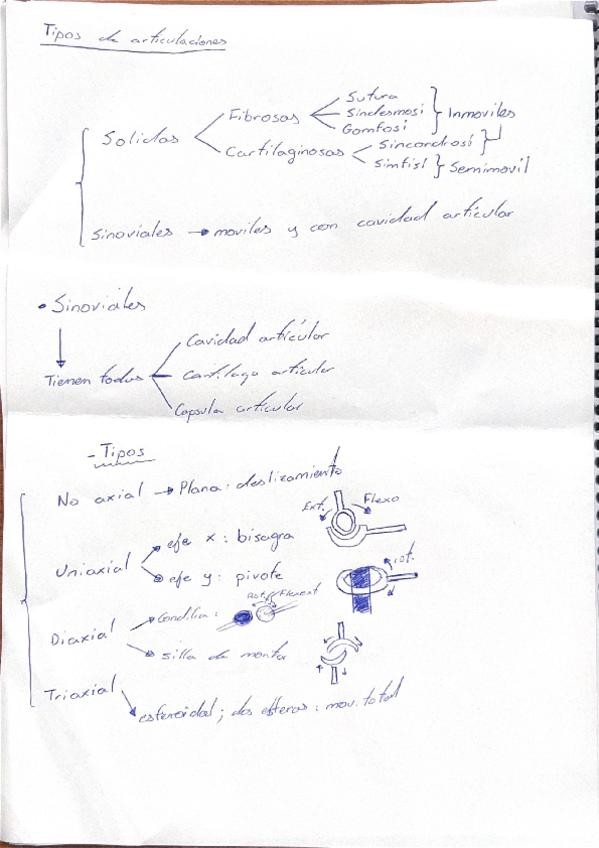 Tipos de articulaciones
Sutura
Fibrosas Sindesmosi Inmoviles
Gomfosi
Solidas
Cartilaginosas Sincondrosi
Simfisi Semimovil
Sinoviales → moviles y con cavidad articular
• Sinoviales
Cavidad articular
Tienen todas Cartilago articular
Capsula articular
- Tipos
No axial → Plana: deslizamiento
Ext. Flexo
Uniaxial eje x: bisagra
eje y: pivote rot.
Condilia: Rot. Flexoext
Diaxial
silla de montar
Triaxial
esferoidal; dos esferas: mov. total